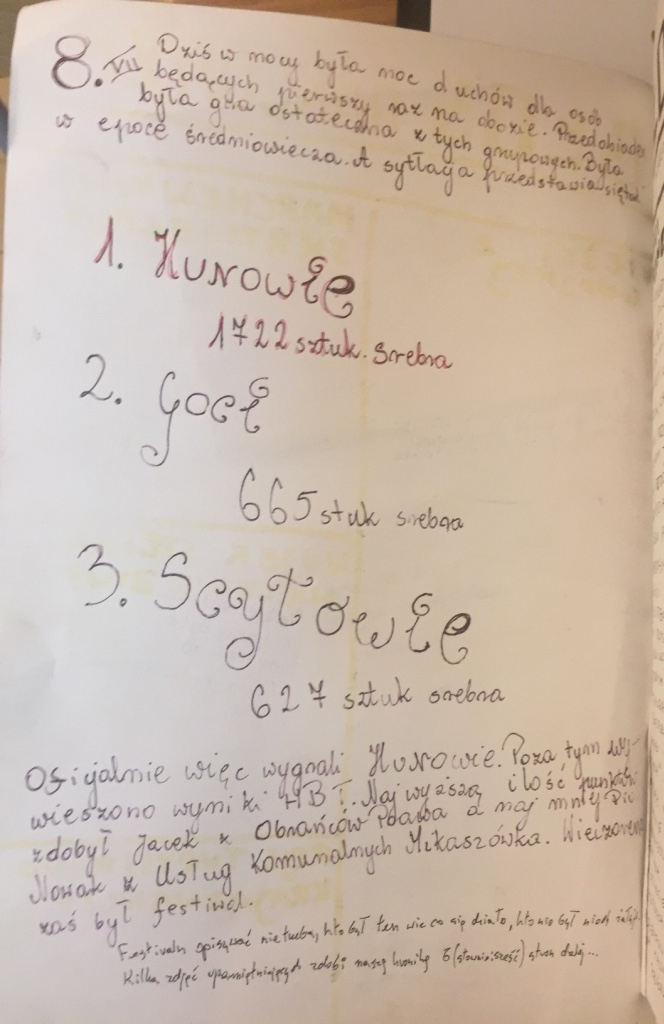 8. VII Dziś w nocy była noc duchów dla osób
będących pierwszy raz na obozie. Przedobiadem
była gra ostateczna z tych grupowych. Była
w epoce średniowiecza. A sytłaga przedstawia się tak
1. Hunowie
1722 sztuk. srebra
2. Goci
665 stuk srebra
3. Scytowie
627 sztuk srebra
Oficjalnie więc wygrali Hunowie. Poza tym wy-
wieszono wyniki HBT. Najwyższą ilość punktów
zdobył Jacek z Obrańców Prawa a naj mniej Pio
Nowak z Usług Komunalnych Mikaszówka. Wieczorem
zaś był festiwal.
Festivalu opisywać nie trzeba, kto był ten wie co się działo, kto nie był niech żałuje
Kilka zdjęć upamiętniających zdobi naszą kronikę 6 (słownie: sześć) stron dalej...